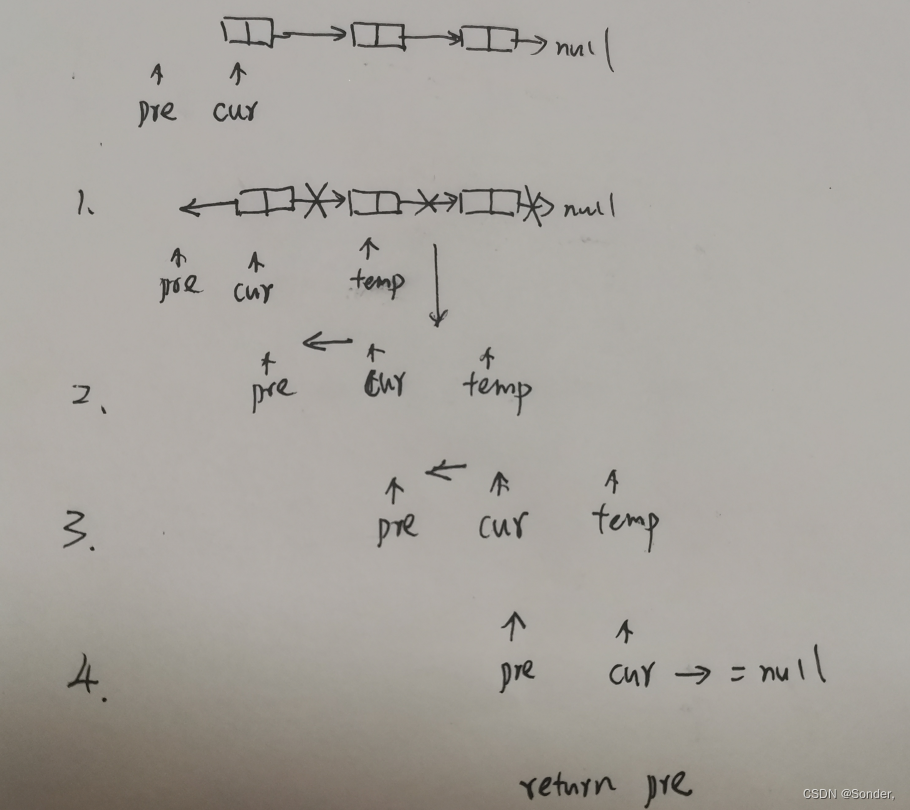 null
pre cur
1. null
pre cur temp
2. pre cur temp
3. pre cur temp
4. pre cur → = null
return pre
CSDN @Sonder,